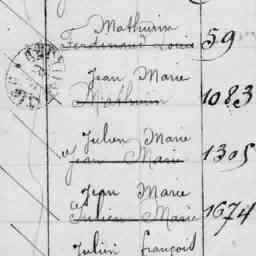 Mathurin
Ferdinand Louis 59
Jean Marie
Mathurin 1083
Julien Marie
Jean Marie 1305
Jean Marie
Julien Marie 1674
Julien françois